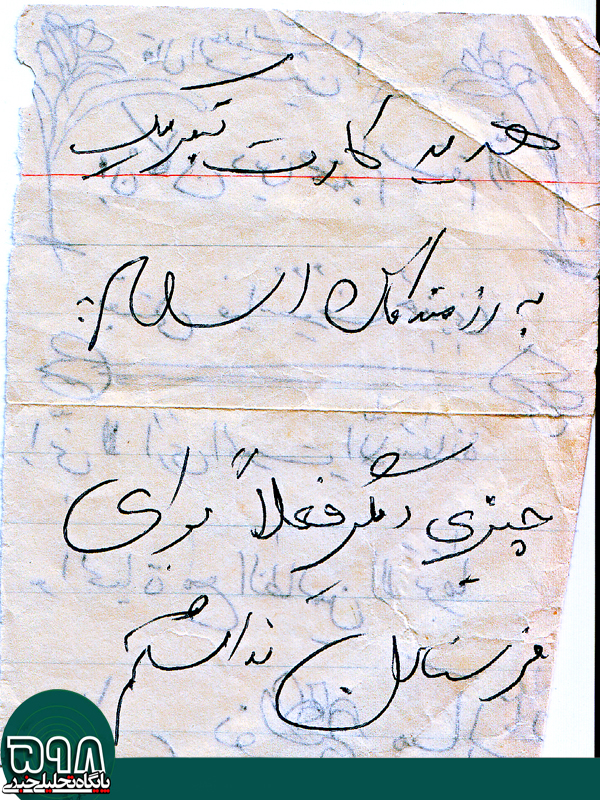 هدیه کارت تبریک
به رزمندگان اسلام:
چیزی دیگر فعلاً برای
فرستادن نداشتم
۵۹۸
پایگاه تحلیلی خبری